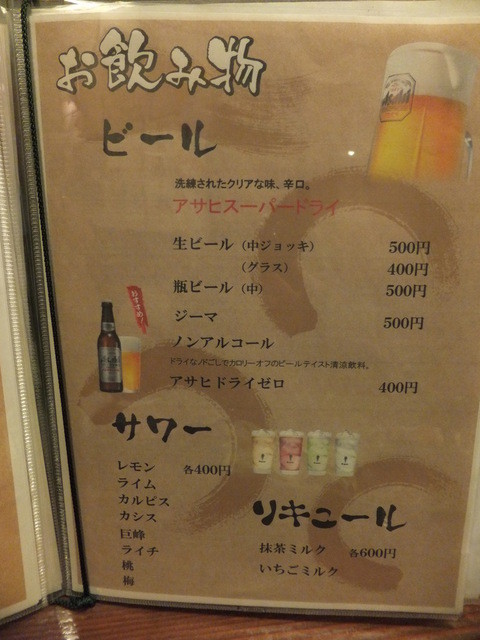 お飲み物
ビール
洗練されたクリアな味、辛口。
アサヒスーパードライ
生ビール（中ジョッキ） 500円
（グラス） 400円
瓶ビール（中） 500円
おすすめ！
ジーマ 500円
ノンアルコール
ドライなノドごしでカロリーオフのビールテイスト清涼飲料。
アサヒドライゼロ 400円
サワー
レモン 各400円
ライム
カルピス
カシス
巨峰
ライチ
桃
梅
リキュール
抹茶ミルク 各600円
いちごミルク